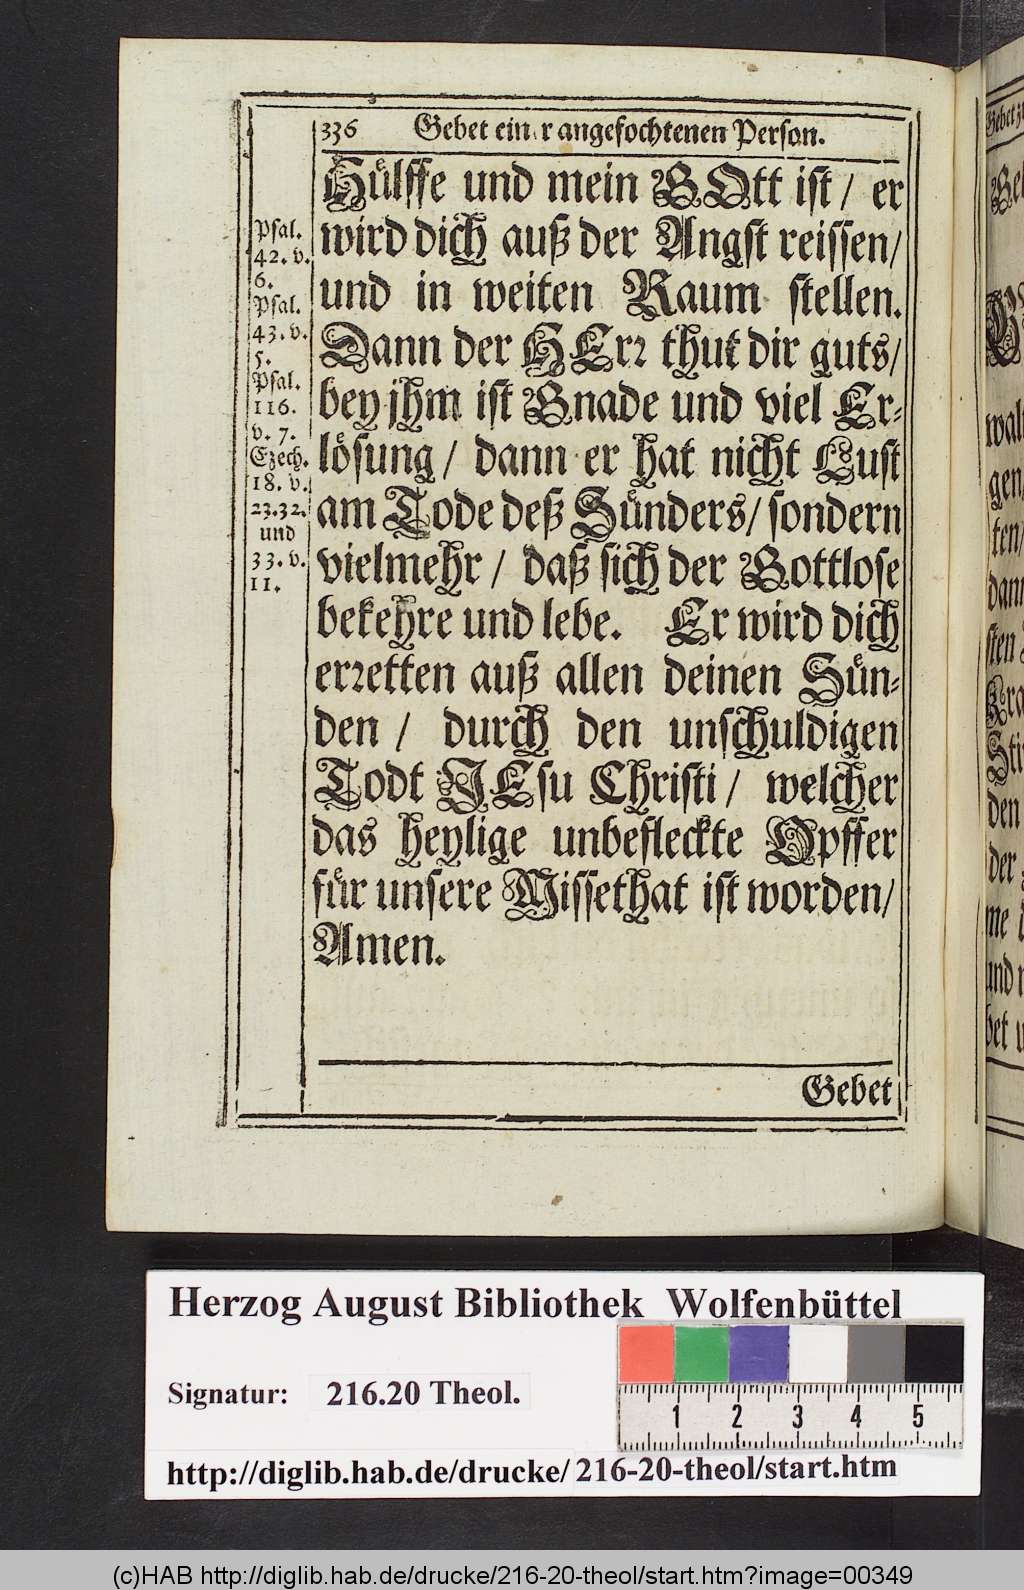 336 Gebet einer angefochtenen Person.
Hülffe und mein GOtt ist / er
wird dich auß der Angst reissen/
und in weiten Raum stellen.
Dann der HErr thut dir guts/
bey jhm ist Gnade und viel Er-
lösung / dann er hat nicht Lust
am Tode deß Sünders/ sondern
vielmehr / daß sich der Gottlose
bekehre und lebe. Er wird dich
erretten auß allen deinen Sün-
den / durch den unschuldigen
Todt JEsu Christi / welcher
das heylige unbefleckte Opffer
für unsere Missethat ist worden/
Amen.
Psal.
42. v.
6.
Psal.
43. v.
5.
Psal.
116.
v. 7.
Ezech.
18. v.
23.32.
und
33. v.
11.
Gebet
Herzog August Bibliothek Wolfenbüttel
Signatur: 216.20 Theol.
1 2 3 4 5
http://diglib.hab.de/drucke/216-20-theol/start.htm
(c)HAB http://diglib.hab.de/drucke/216-20-theol/start.htm?image=00349